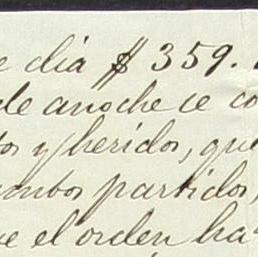 e dia $ 359.
de anoche se co
tos y heridos, que
ambos partidos,
ue el orden ha